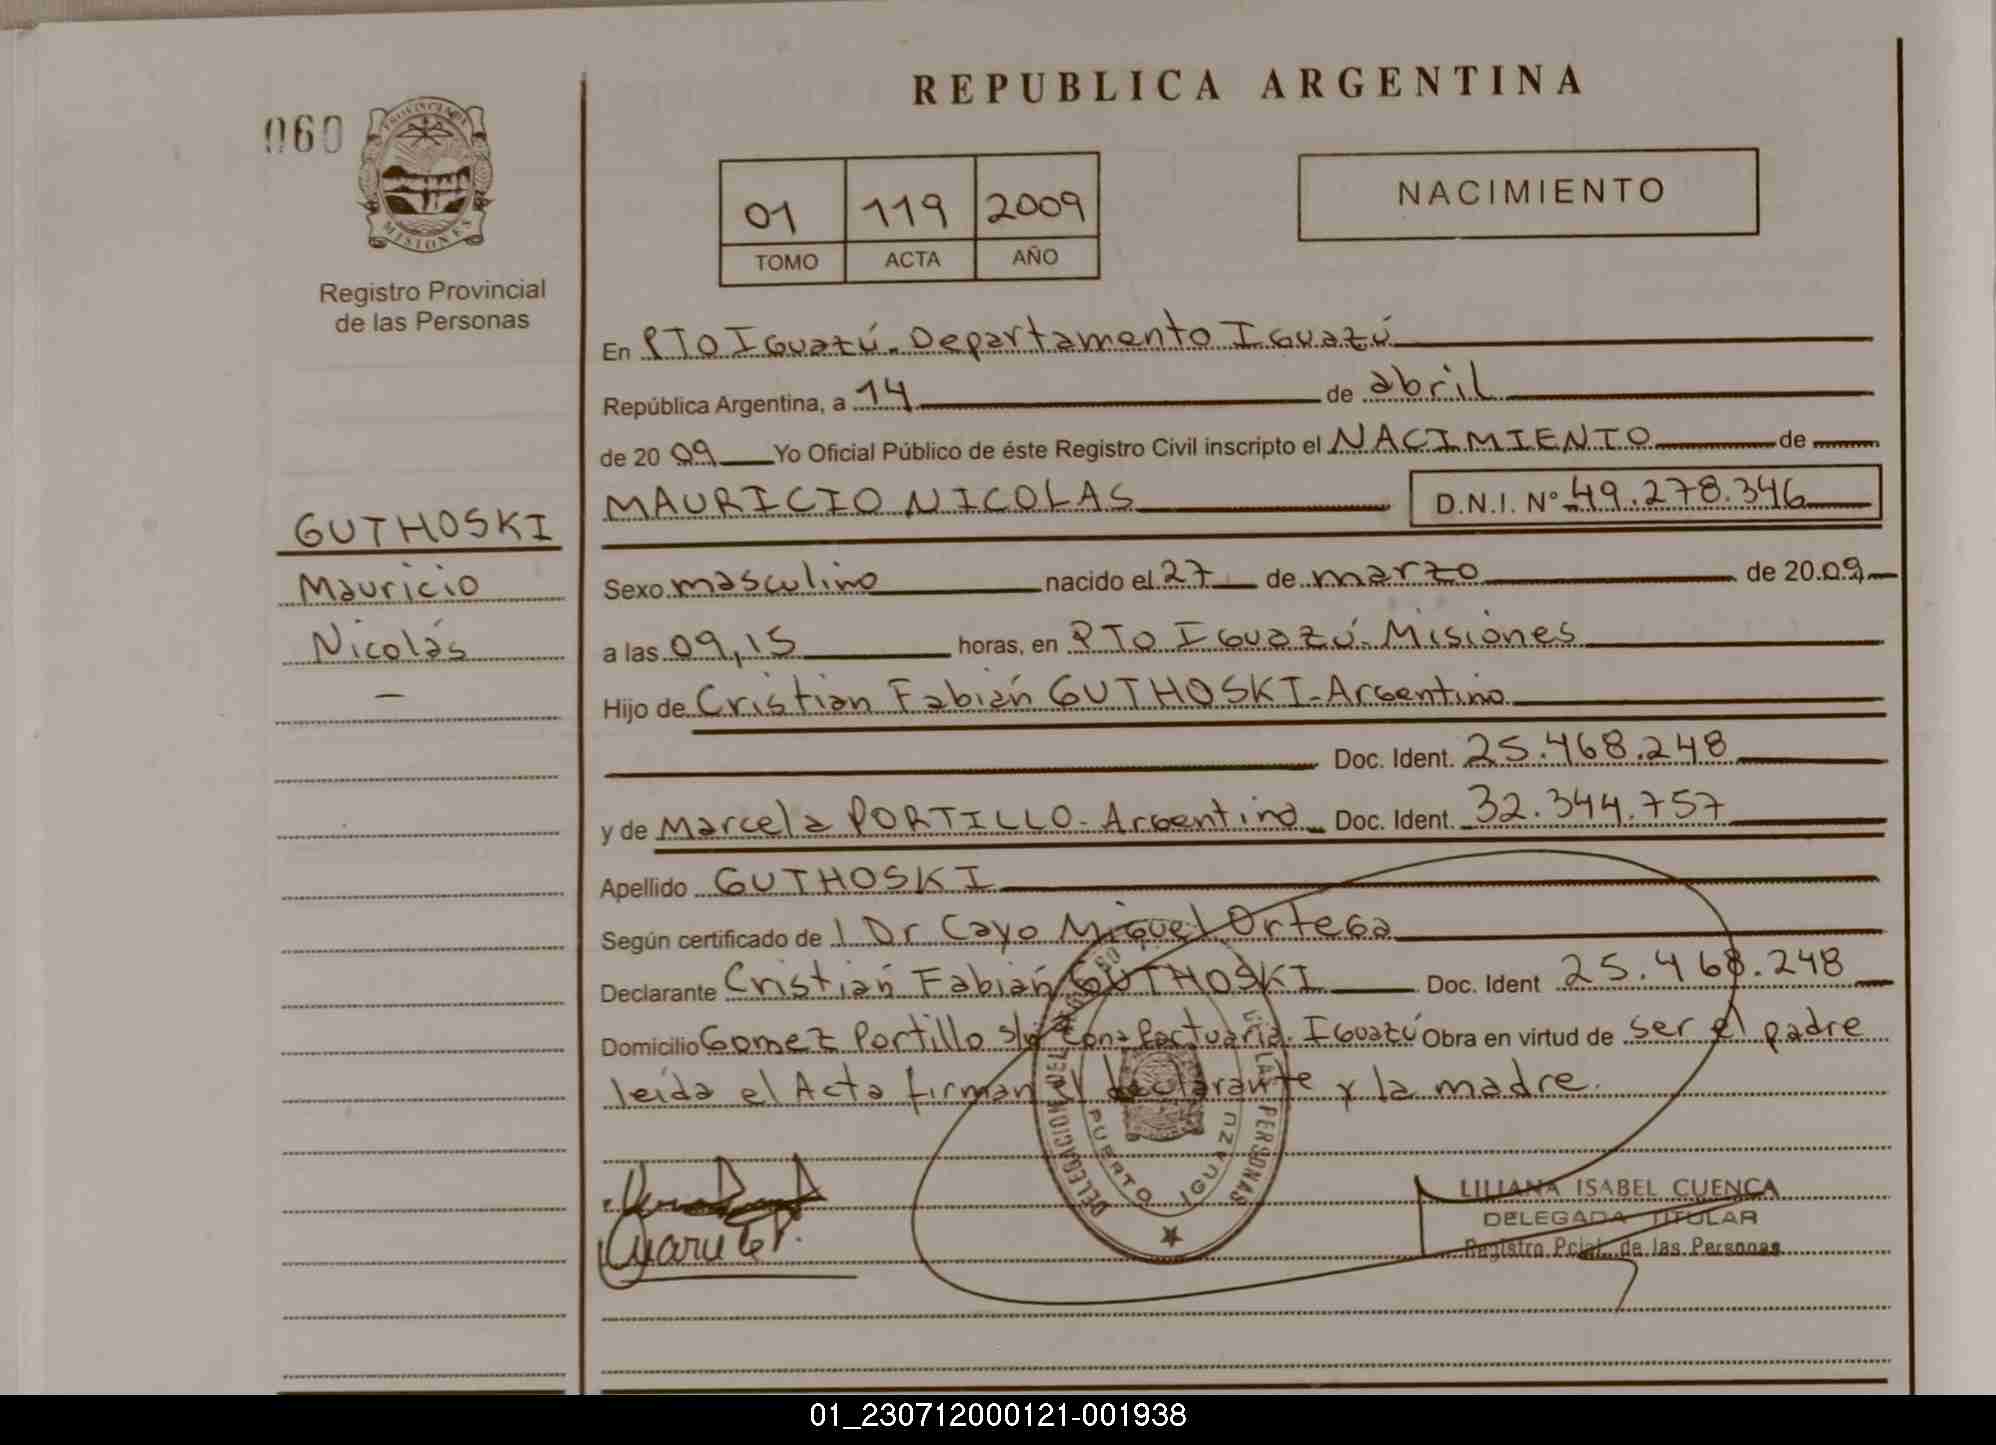 REPUBLICA ARGENTINA
060
PROVINCIA DE
MISIONES
Registro Provincial
de las Personas
01 119 2009
TOMO ACTA AÑO
NACIMIENTO
En PTO Iguazú. Departamento Iguazú
República Argentina, a 14 de abril
de 2009 Yo Oficial Público de éste Registro Civil inscripto el NACIMIENTO de
MAURICIO NICOLAS D.N.I. Nº 49.278.346
GUTHOSKI
Mauricio
Nicolás
Sexo masculino nacido el 27 de marzo de 2009
a las 09,15 horas, en PTO Iguazú. Misiones
Hijo de Cristian Fabián GUTHOSKI - Argentino
Doc. Ident. 25.468.248
y de Marcela PORTILLO - Argentina Doc. Ident. 32.344.757
Apellido GUTHOSKI
Según certificado de l Dr Cayo Miguel Ortega
Declarante Cristián Fabián GUTHOSKI Doc. Ident 25.468.248
Domicilio Gomez Portillo s/n Zona Portuaria. Iguazú Obra en virtud de ser el padre
leída el Acta firman el declarante y la madre.
DELEGACION DEL DE LAS PERSONAS
PUERTO IGUAZU
LILIANA ISABEL CUENCA
DELEGADA TITULAR
Registro Pcial. de las Personas
01_230712000121-001938